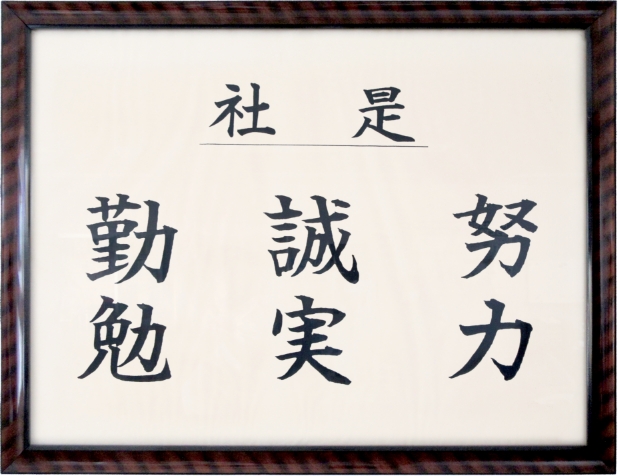 社是
努力
誠実
勤勉